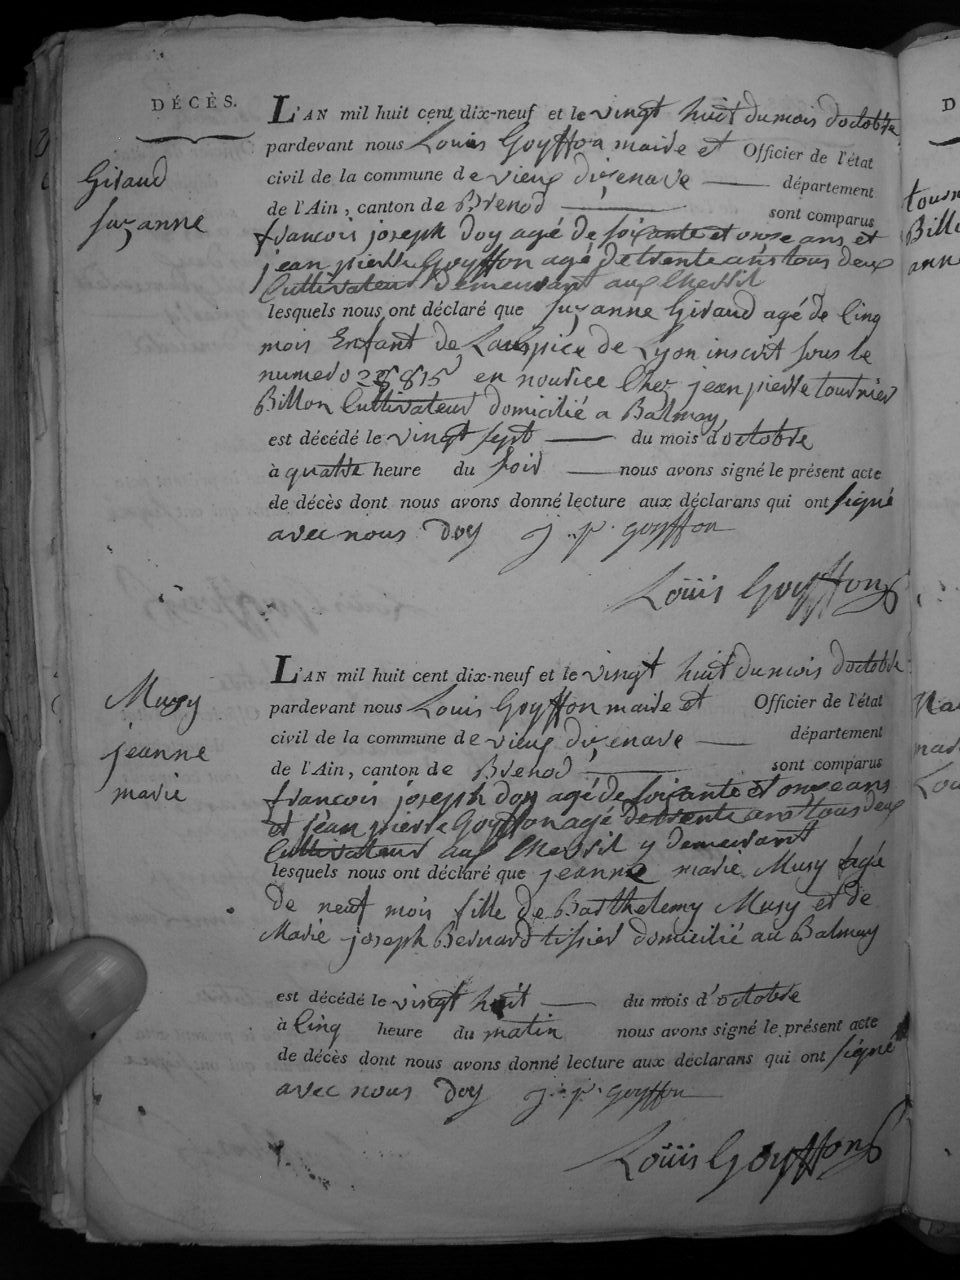 DÉCÈS.
Giraud
suzanne
L'AN mil huit cent dix-neuf et le vingt huit du mois doctobre
pardevant nous Louis Goyffon maire et Officier de l'état
civil de la commune de vieux dizenave département
de l'Ain, canton de Brenod sont comparus
francois joseph Doy agé de soixante et onze ans et
jean pierre Goyffon agé de trente ans tous deux
Cultivateur demeurant aux
lesquels nous ont déclaré que suzanne Giraud agé de Cinq
mois Enfant de Lauspice de Lyon inscrit sous le
numero en nourice Chez jean pierre tournier
Billon Cultivateur domicilié a Balmay
est décédé le vingt sept du mois d'octobre
à quatre heure du soir nous avons signé le présent acte
de décès dont nous avons donné lecture aux déclarans qui ont signé
avec nous Doy j. p. goyffon
Louis Goyffon
Musy
jeanne
marie
L'AN mil huit cent dix-neuf et le vingt huit du mois doctobre
pardevant nous Louis Goyffon maire et Officier de l'état
civil de la commune de vieux dizenave département
de l'Ain, canton de Brenod sont comparus
francois joseph Doy agé de soixante et onze ans
et jean pierre Goyffon agé de trente ans tous deux
Cultivateur aux y demeurant
lesquels nous ont déclaré que jeanne marie Musy agé
de neuf mois fille de Barthelemy Musy et de
Marie joseph Bernard tissier domicilié au Balmay
est décédé le vingt huit du mois d'octobre
à Cinq heure du matin nous avons signé le présent acte
de décès dont nous avons donné lecture aux déclarans qui ont signé
avec nous Doy j. p. goyffon
Louis Goyffon